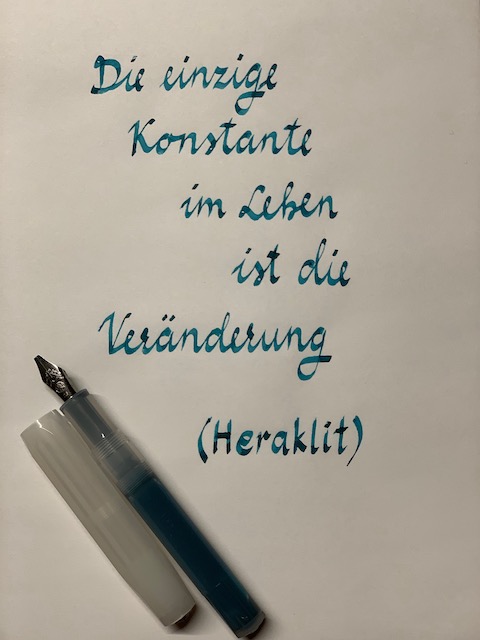 Die einzige
Konstante
im Leben
ist die
Veränderung
(Heraklit)